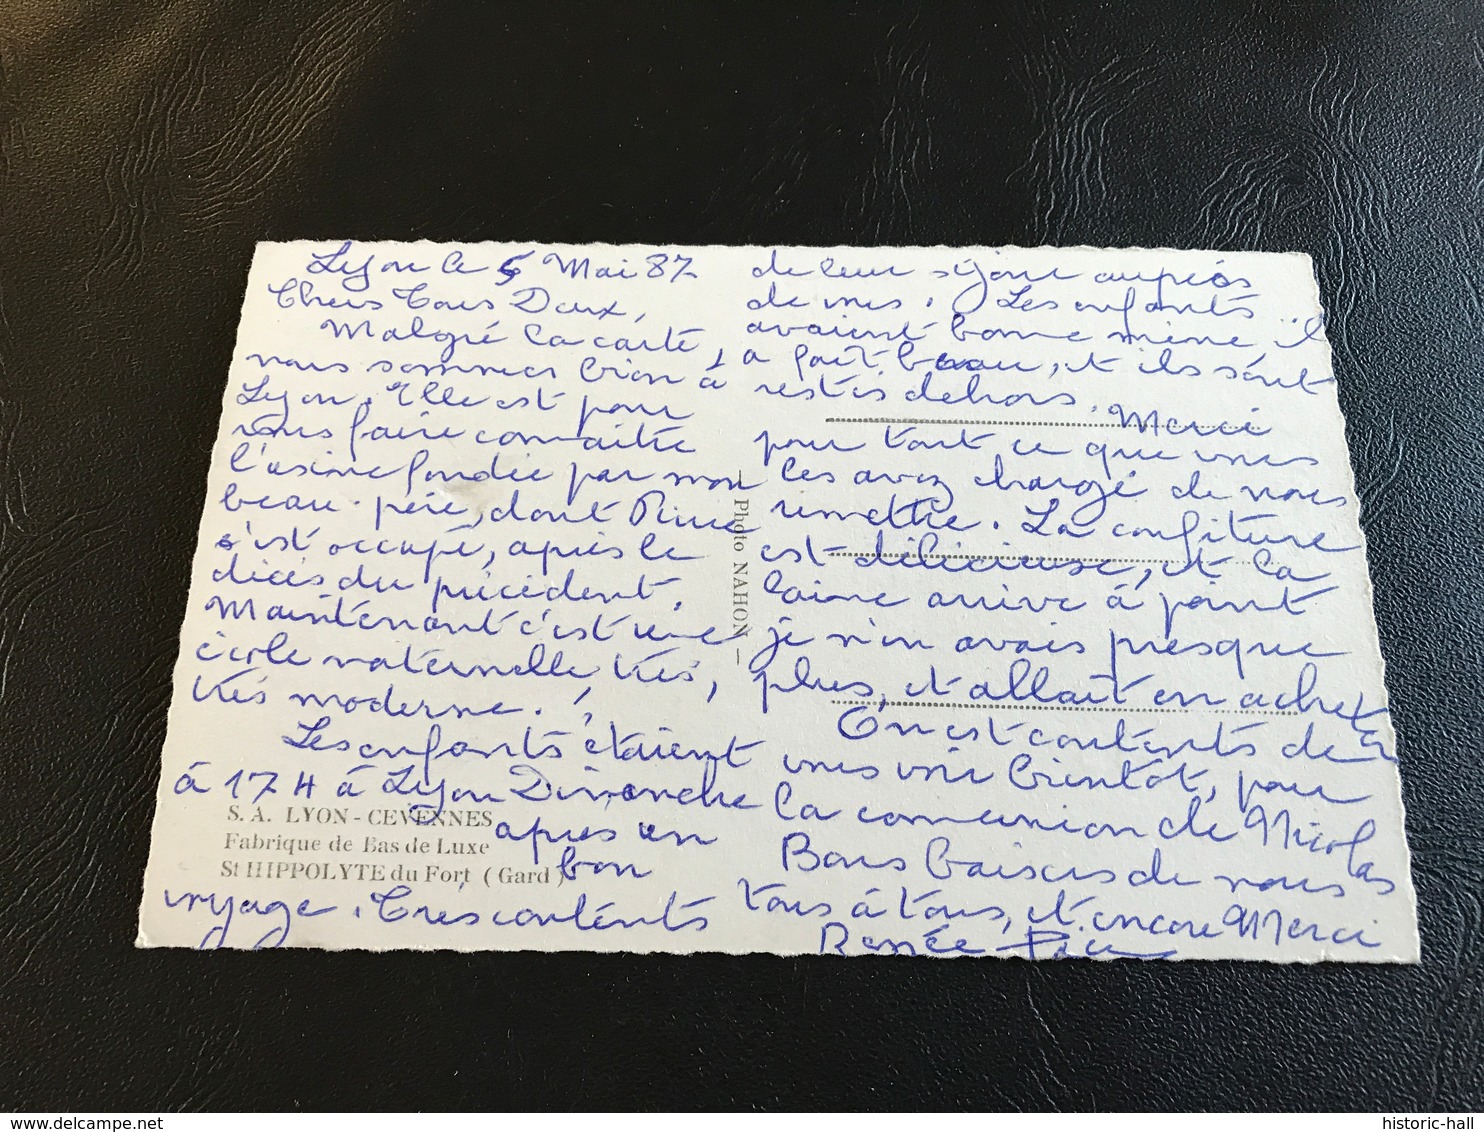 Lyon le 5 Mai 87
Chers Tous Deux,
Malgré la carte,
nous sommes bien à
Lyon. Elle est pour
vous faire connaitre
l'usine fondée par mon
beau-père, dont Pierre
s'est occupé, après le
décès du précédent.
Maintenant c'est une
école maternelle, très,
très moderne.
Les enfants étaient
à 17 H à Lyon Dimanche
après un
bon
voyage. Très contents
S. A. LYON - CEVENNES
Fabrique de Bas de Luxe
St HIPPOLYTE du Fort ( Gard )
— Photo NAHON —
de leur séjour auprès
de vous. Les enfants
avaient bonne mine, il
a fait beau, et ils sont
restés dehors. Merci
pour tout ce que vous
les avez chargé de nous
remettre. La confiture
est délicieuse, et la
laine arrive à point
je n'en avais presque
plus, et allait en acheter
On est contents de
vous voir bientôt, pour
la communion de Nicolas
Bons baisers de nous
tous à tous, et encore Merci
Renée